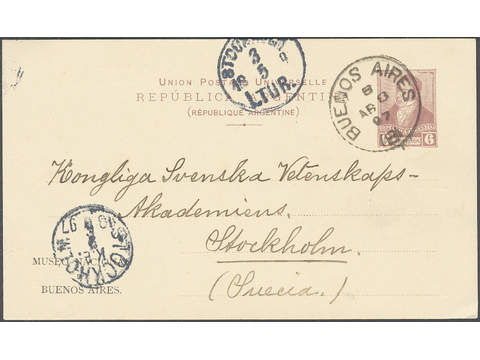 STOCKHOLM
3
5
1.TUR.
UNION POSTALE UNIVERSELLE
REPÚBLICA ARGENTINA
(RÉPUBLIQUE ARGENTINE)
BUENOS AIRES
8
ABO
97
6 6
Kongliga Svenska Vetenskaps-
Akademiens.
Stockholm.
(Suecia.)
STOCKHOLM
97
MUSEO NACIONAL
BUENOS AIRES.